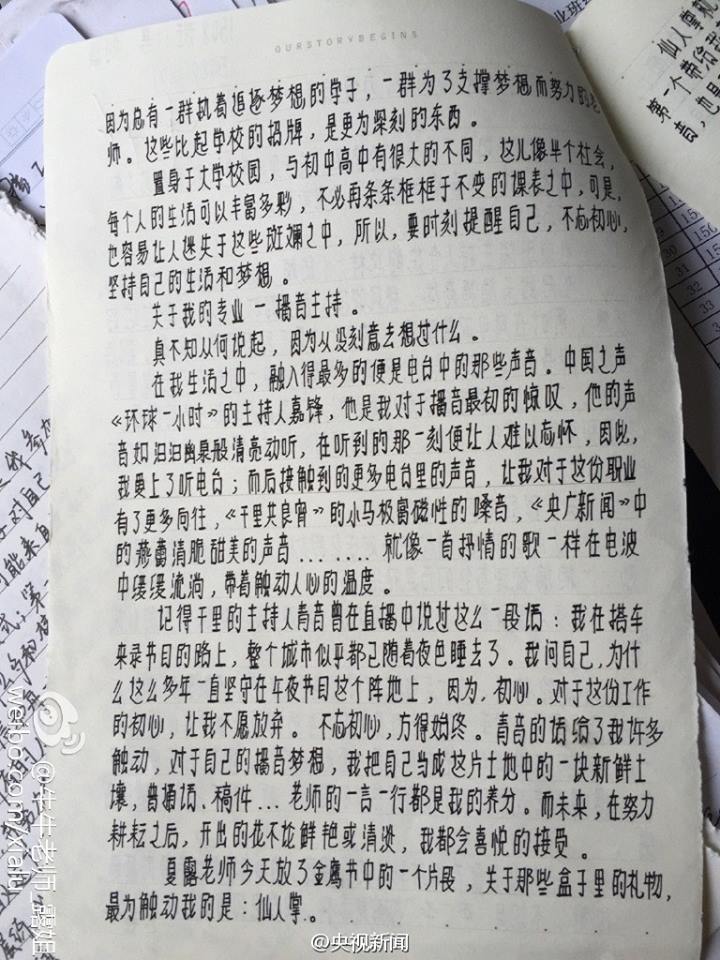 OURSTORYBEGINS
因为总有一群执着追逐梦想的学子，一群为了支撑梦想而努力的老
师。这些比起学校的招牌，是更为深刻的东西。
置身于大学校园，与初中高中有很大的不同，这儿像半个社会，
每个人的生活可以丰富多彩，不必再条条框框于不变的课表之中，可是，
也容易让人迷失于这些斑斓之中，所以，要时刻提醒自己，不忘初心，
坚持自己的生活和梦想。
关于我的专业一播音主持。
真不知从何说起，因为从没刻意去想过什么。
在我生活之中，融入得最多的便是电台中的那些声音。中国之声
《环球一小时》的主持人嘉锋，他是我对于播音最初的惊叹，他的声
音如汩汩幽泉般清亮动听，在听到的那一刻便让人难以忘怀，因此，
我更上了听电台；而后接触到的更多电台里的声音，让我对于这份职业
有了更多向往，《千里共良宵》的小马极富磁性的嗓音，《央广新闻》中
的燕蕾清脆甜美的声音........就像一首抒情的歌一样在电波
中缓缓流淌，带着触动人心的温度。
记得千里的主持人青音曾在直播中说过这么一段话：我在搭车
来录节目的路上，整个城市似乎都已随着夜色睡去了。我问自己，为什
么这么多年一直坚守在午夜节目这个阵地上，因为、初心。对于这份工作
的初心，让我不愿放弃。不忘初心，方得始终。青音的话给了我许多
触动，对于自己的播音梦想，我把自己当成这片土地中的一块新鲜土
壤，普通话、稿件...老师的一言一行都是我的养分。而未来，在努力
耕耘之后，开出的花不论鲜艳或清淡，我都会喜悦的接受。
夏露老师今天放了金鹰节中的一个片段，关于那些盒子里的礼物，
最为触动我的是：仙人掌。
仙人掌和
第一个带给我
音，也是
@央视新闻
weibo.com/xialu